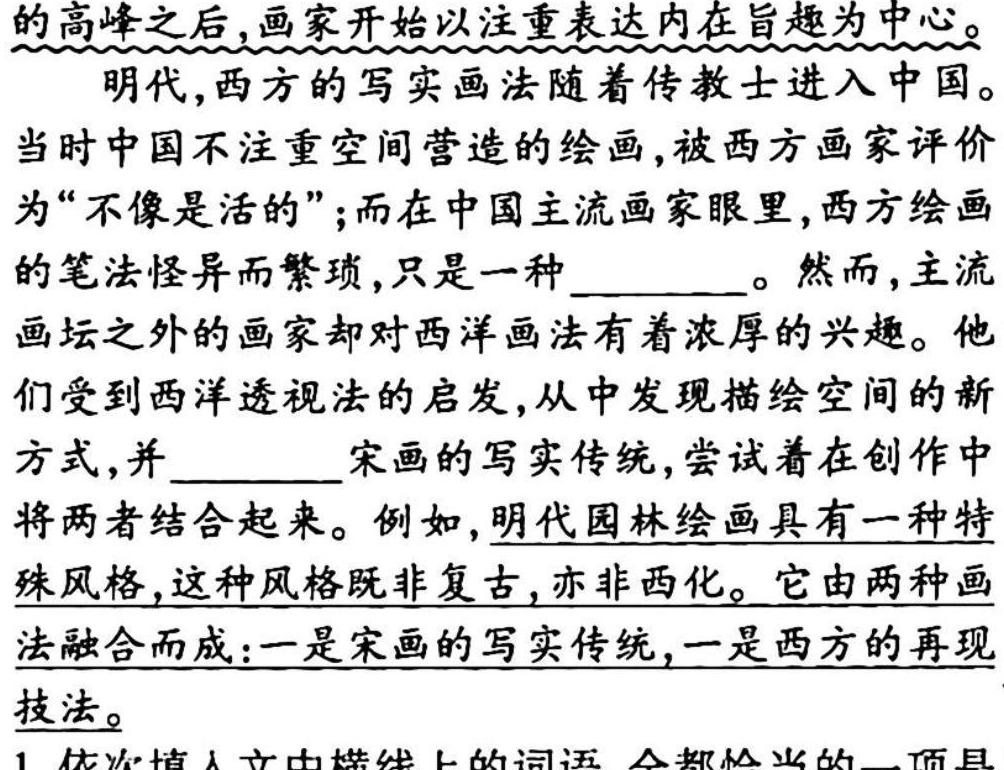 的高峰之后,画家开始以注重表达内在旨趣为中心。
明代,西方的写实画法随着传教士进入中国。
当时中国不注重空间营造的绘画,被西方画家评价
为“不像是活的”;而在中国主流画家眼里,西方绘画
的笔法怪异而繁琐,只是一种________。然而,主流
画坛之外的画家却对西洋画法有着浓厚的兴趣。他
们受到西洋透视法的启发,从中发现描绘空间的新
方式,并________宋画的写实传统,尝试着在创作中
将两者结合起来。例如,明代园林绘画具有一种特
殊风格,这种风格既非复古,亦非西化。它由两种画
法融合而成:一是宋画的写实传统,一是西方的再现
技法。
1.依次填入文中横线上的词语,全都恰当的一项是